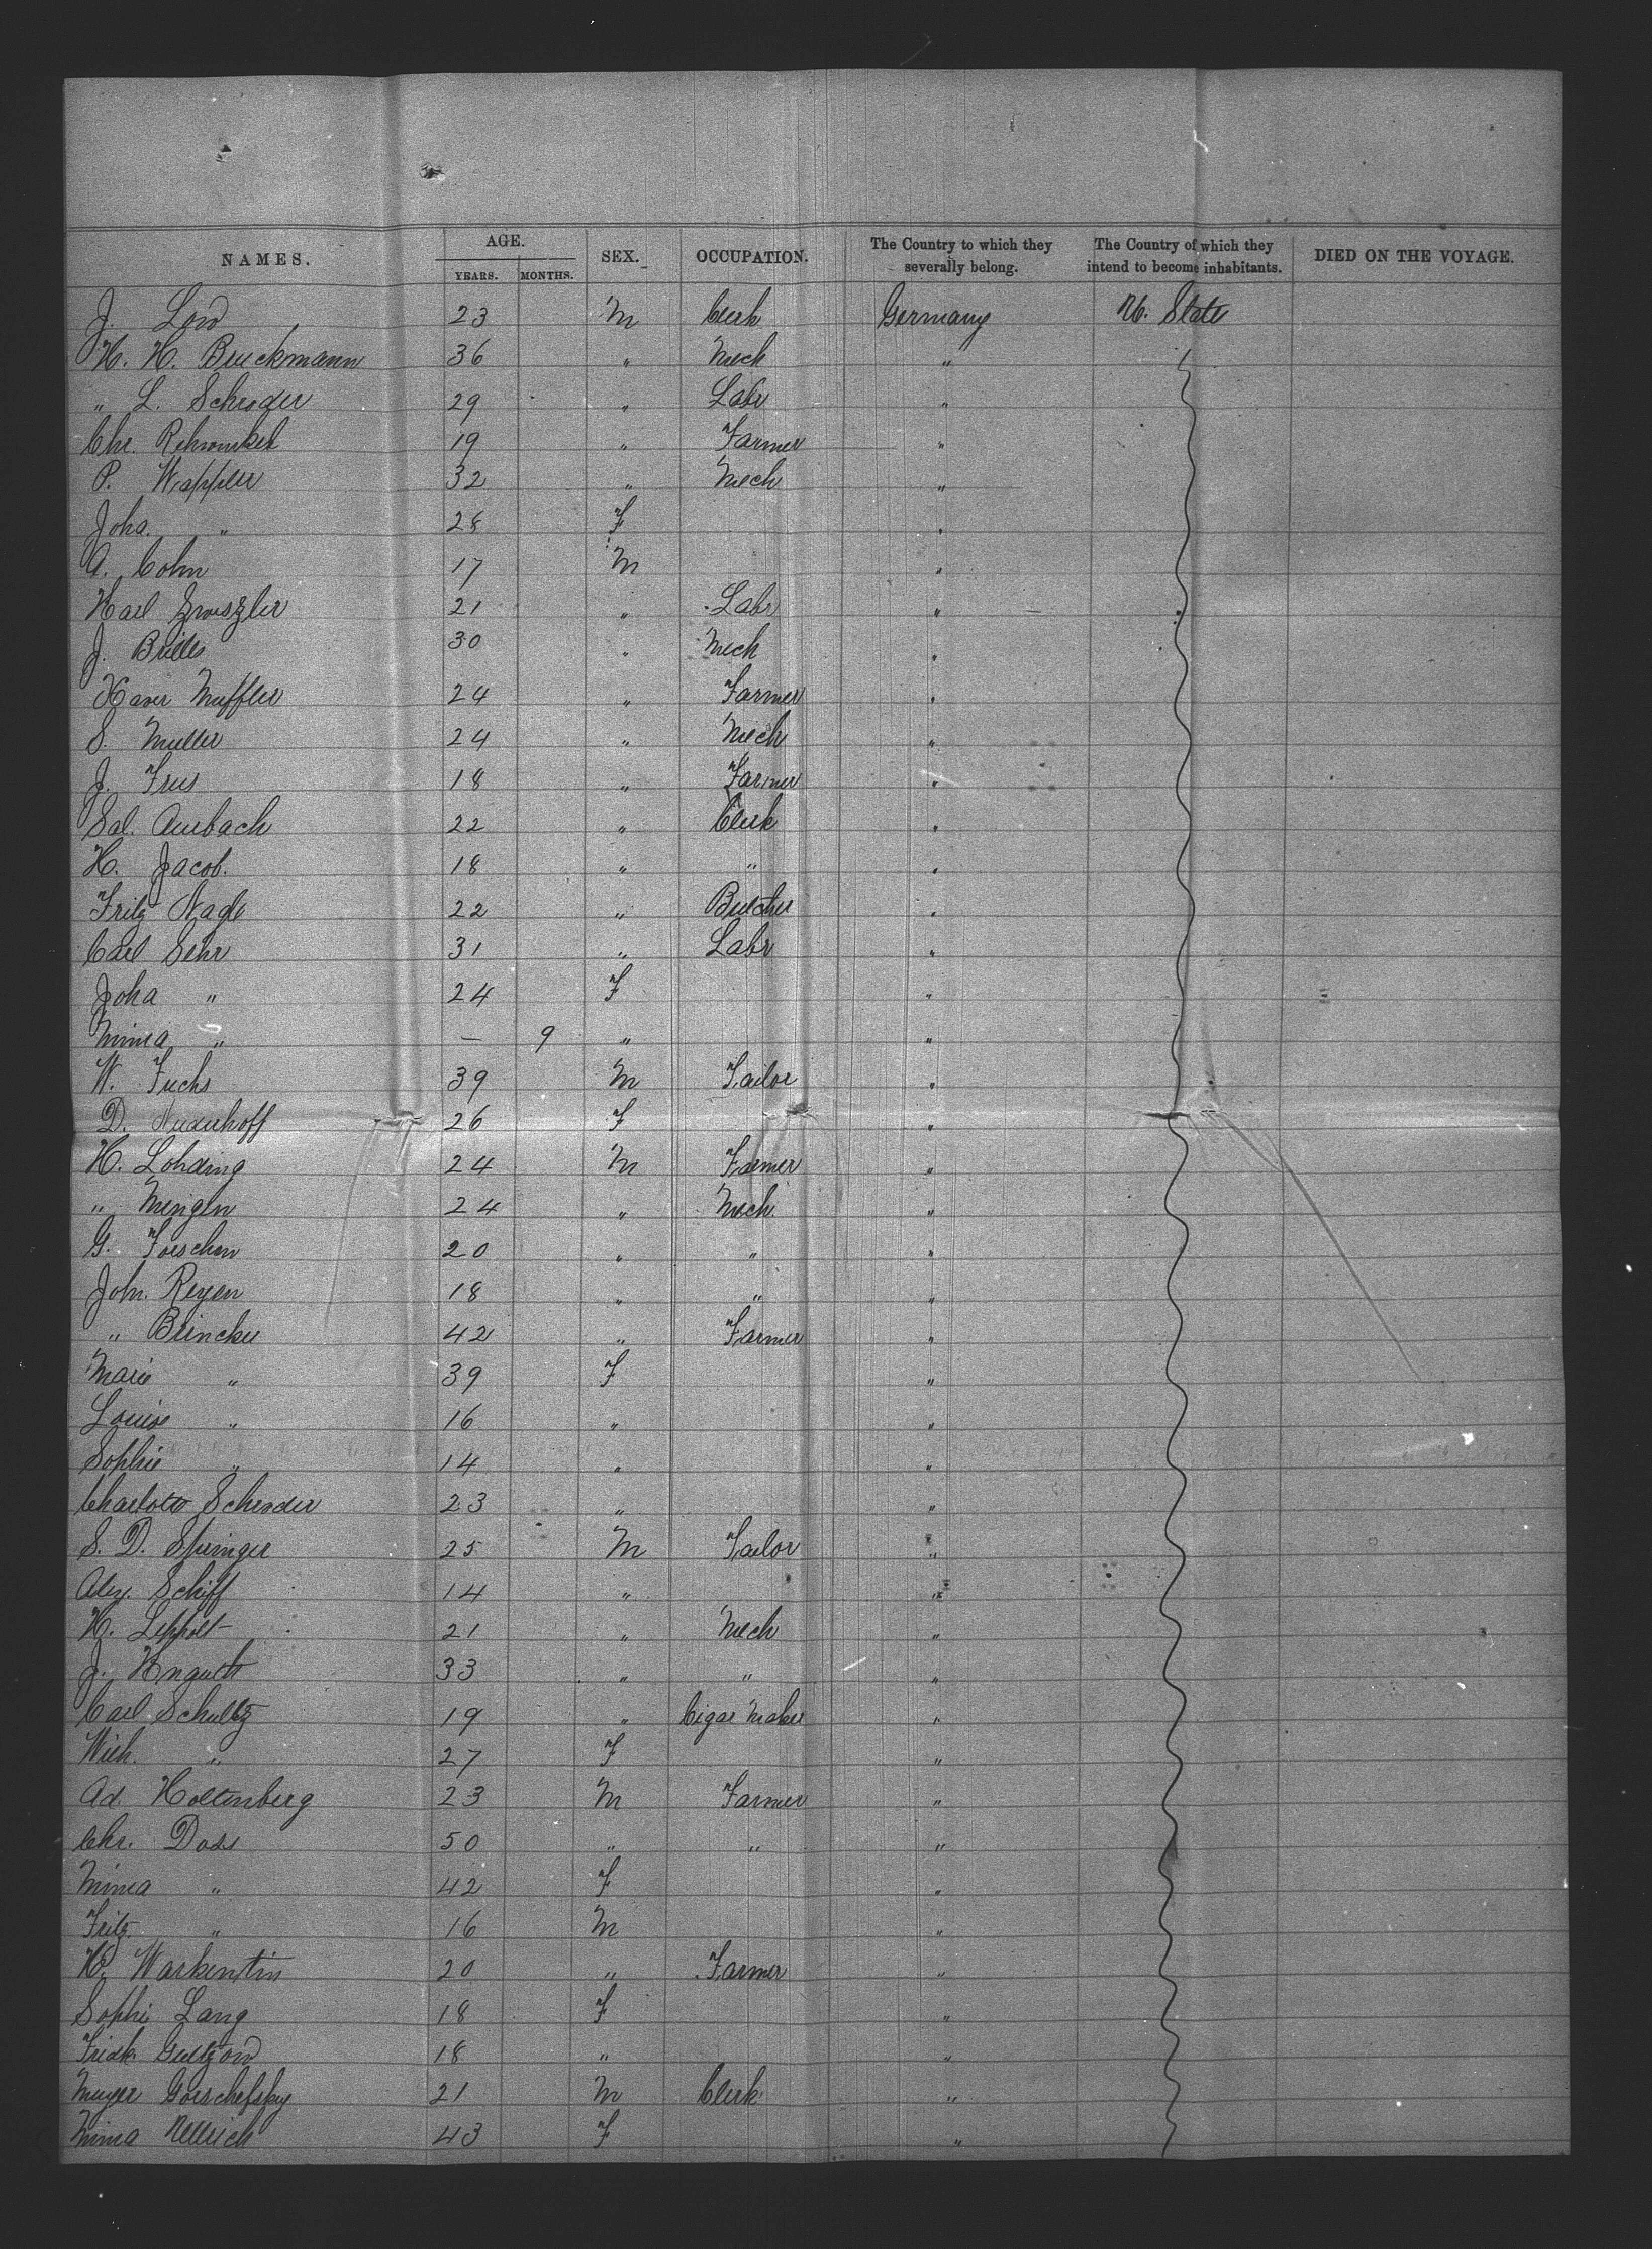 NAMES. AGE. YEARS. MONTHS. SEX. OCCUPATION. The Country to which they severally belong. The Country of which they intend to become inhabitants. DIED ON THE VOYAGE.
J. Low 23 M Clerk Germany U. State
H. H. Bruckmann 36 " Mech "
" L. Schroder 29 " Labr "
Chr. 19 " Farmer "
P. Wappler 32 " Mech "
Joha. " 28 F "
A. Cohn 17 M "
Karl 21 " Labr "
J. Brilles 30 " Mech "
Xaver Muffler 24 " Farmer "
S. Muller 24 " Mech "
J. Frus 18 " Farmer "
Sal. Auerbach 22 " Clerk "
H. Jacob. 18 " " "
Fritz Nagle 22 " Butcher "
Carl Sehr 31 " Labr "
Joha " 24 F "
Minna " — 9 " "
W. Fuchs 39 M Tailor "
D. Niederhoff 26 F "
H. Lohding 24 M Farmer "
" Mengen 24 " Mech. "
G. Foeschen 20 " " "
Joh. Reyen 18 " " "
" Brincker 42 " Farmer "
Marie " 39 F "
Louise " 16 " "
Sophie " 14 " "
Charlotte Schroder 23 " "
S. D. Springer 25 M Tailor "
Alex. Schiff 14 " "
H. Leppolt 21 " Mech "
J. Knauth 33 " " "
Carl Schultz 19 " Cigar Maker "
Wilh. " 27 F "
Ad. Holtenberg 23 M Farmer "
Chr. Doss 50 " " "
Minna " 42 F "
Fritz " 16 M "
H. Warkentin 20 " Farmer "
Sophie Lang 18 F "
Friedk. Gultzow 18 " "
Meyer Gorschefsky 21 M Clerk "
Minna Nellrich 43 F "